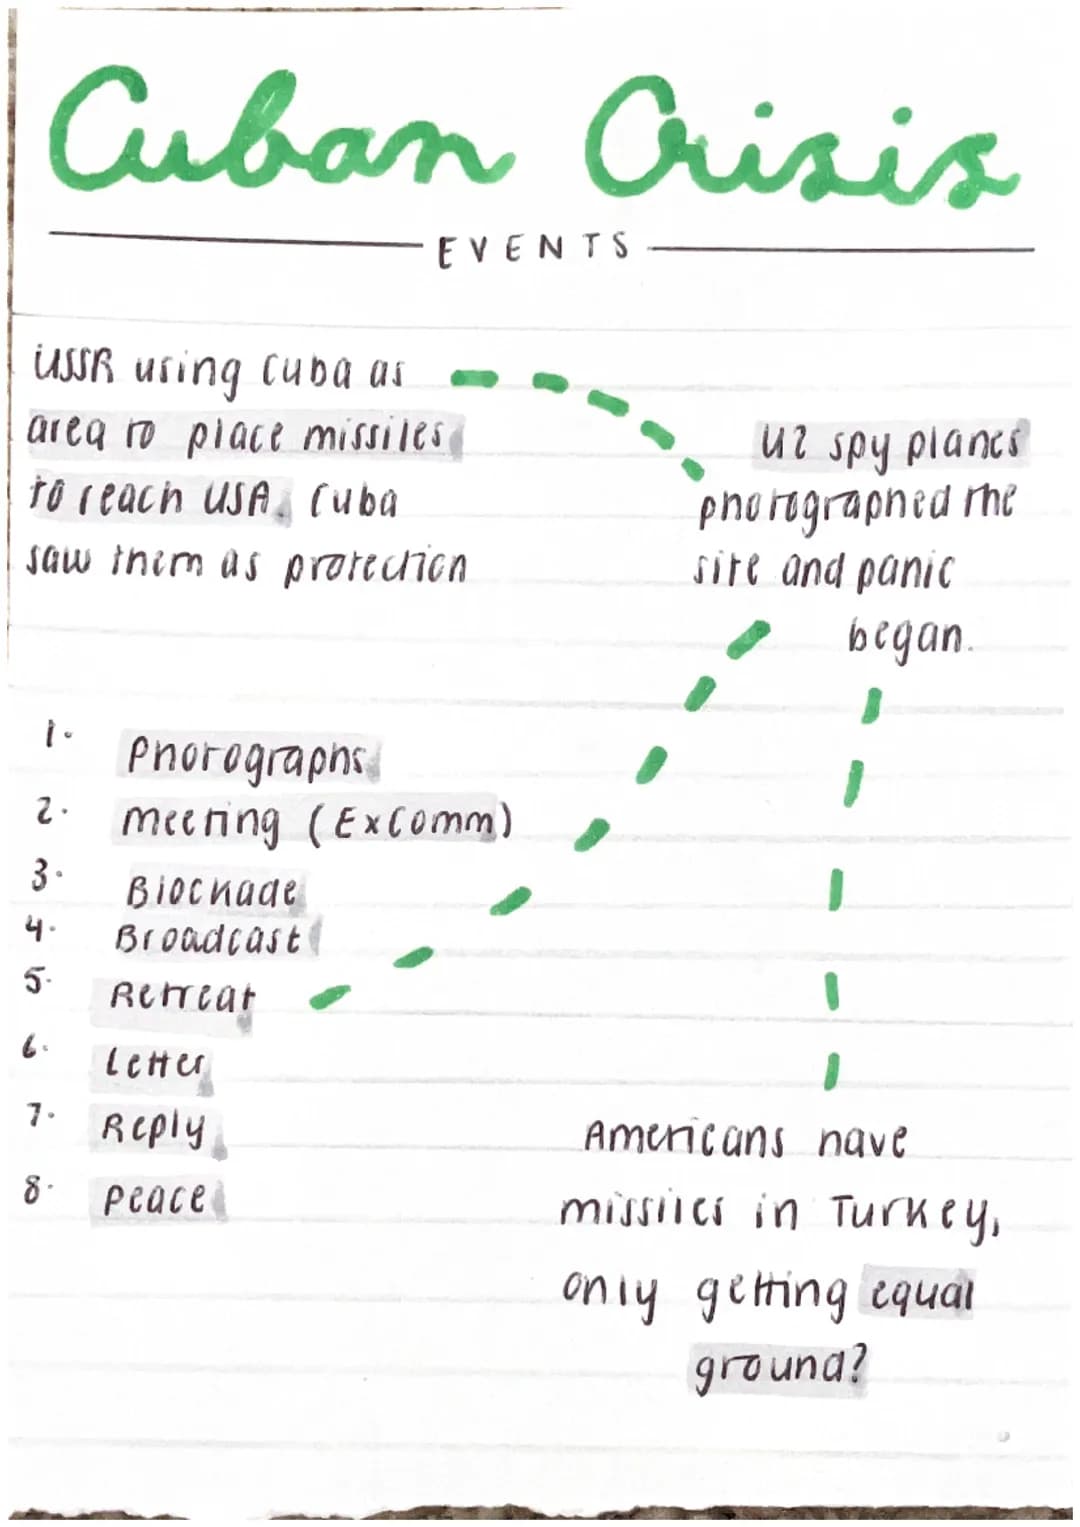 Cuban Crisis
EVENTS
USSR using Cuba as
area to place missiles
to reach USA. Cuba
saw them as protection
U2 spy planes
photographed the
site and panic
began.
1. Photographs
2. Meeting (ExComm)
3. Blockade
4. Broadcast
5. Retreat
6. Letter
7. Reply
8. Peace
Americans have
missiles in Turkey,
only getting equal
ground?